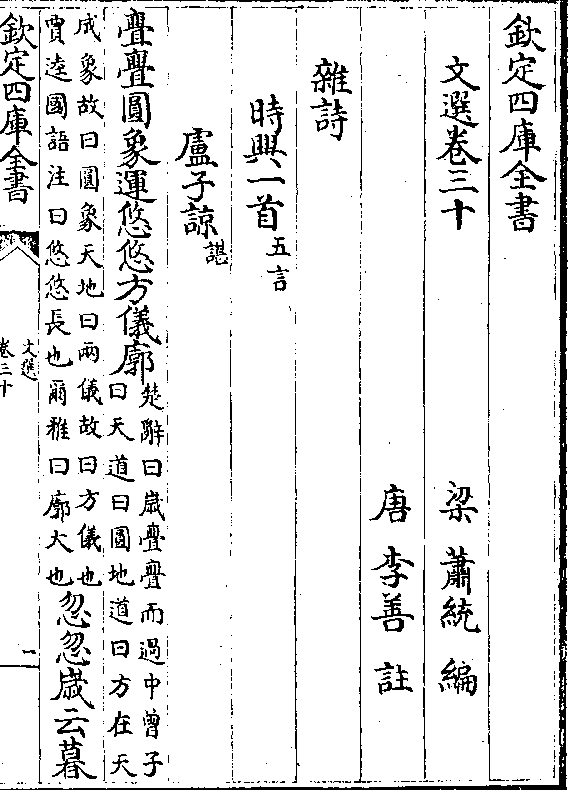 欽定四庫全書
文選卷三十
梁蕭統編
唐李善註
雜詩
時興一首五言
盧子諒諶
亹亹圓象運悠悠方儀廓楚辭曰歲亹亹而過中曾子
曰天道曰圓地道曰方在天
成象故曰圓象天地曰兩儀故曰方儀也
賈逵國語注曰悠悠長也爾雅曰廓大也忽忽歲云暮
欽定四庫全書
文選
卷三十
一